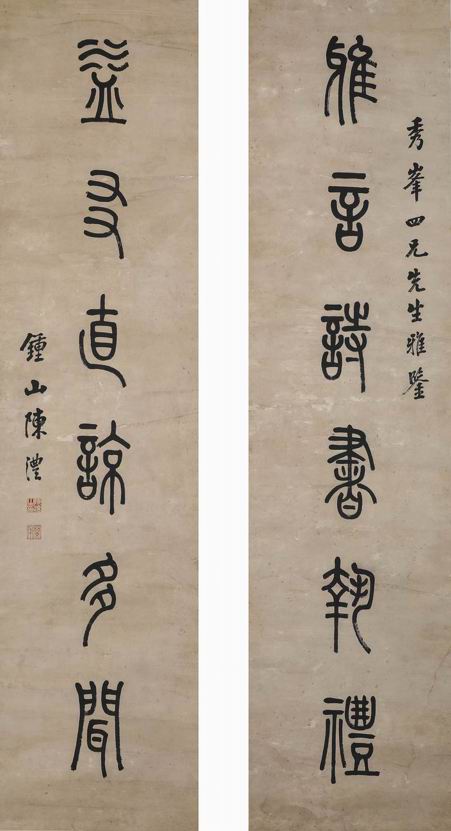 秀峯四兄先生雅鑒
雅言詩書執禮
益友直諒多聞
鍾山陳澧